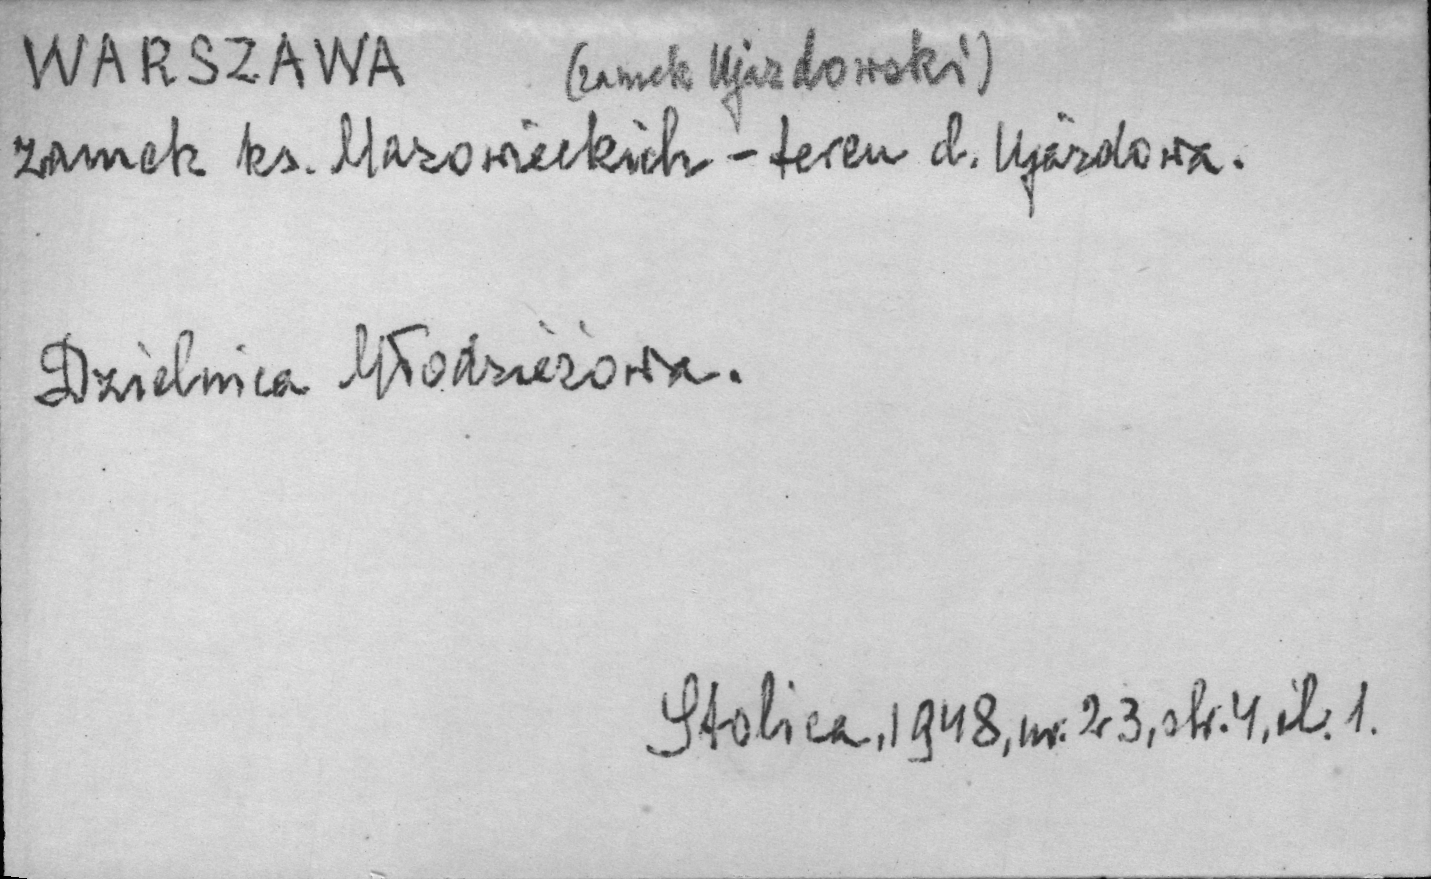 WARSZAWA (zamek Ujazdowski)
zamek ks. Mazowieckich - teren d. Ujazdowa.
Dzielnica Młodzieżowa.
Stolica, 1948, nr. 23, str. 4, il. 1.